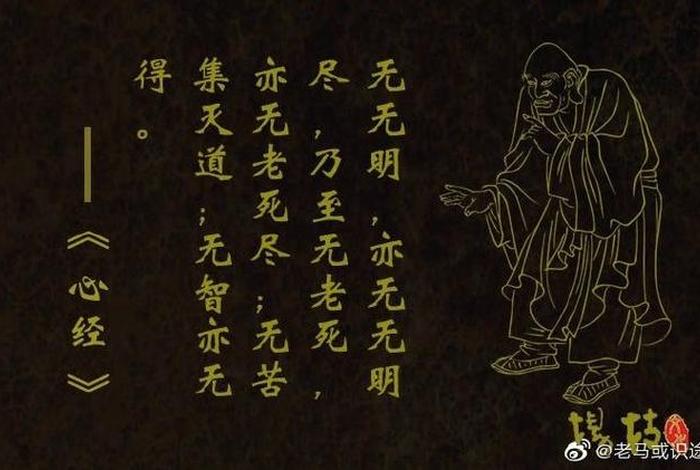 无无明，亦无无明
尽，乃至无老死，
亦无老死尽；无苦
集灭道；无智亦无
得。
——《心经》
@老马或识途